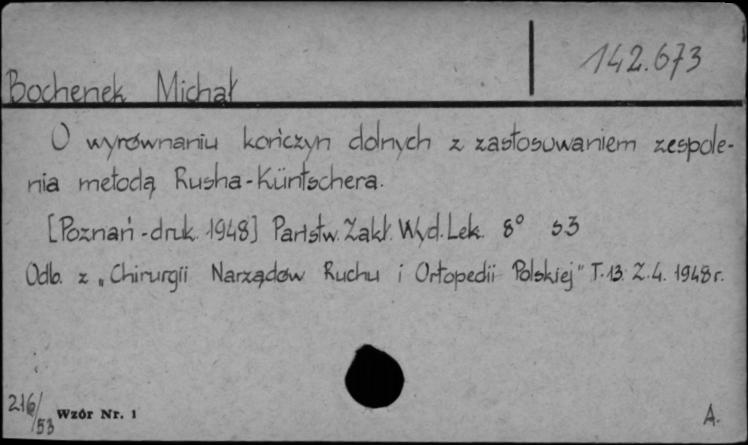 142.673
Bochenek Michał
O wyrównaniu kończyn dolnych z zastosowaniem zespole-
nia metodą Rusha-Küntschera.
[Poznań-druk. 1948] Państw. Zakł. Wyd. Lek. 8° s3
Odb. z „Chirurgii Narządów Ruchu i Ortopedii Polskiej" T. 13. Z. 4. 1948 r.
216/53 Wzór Nr. 1 A.